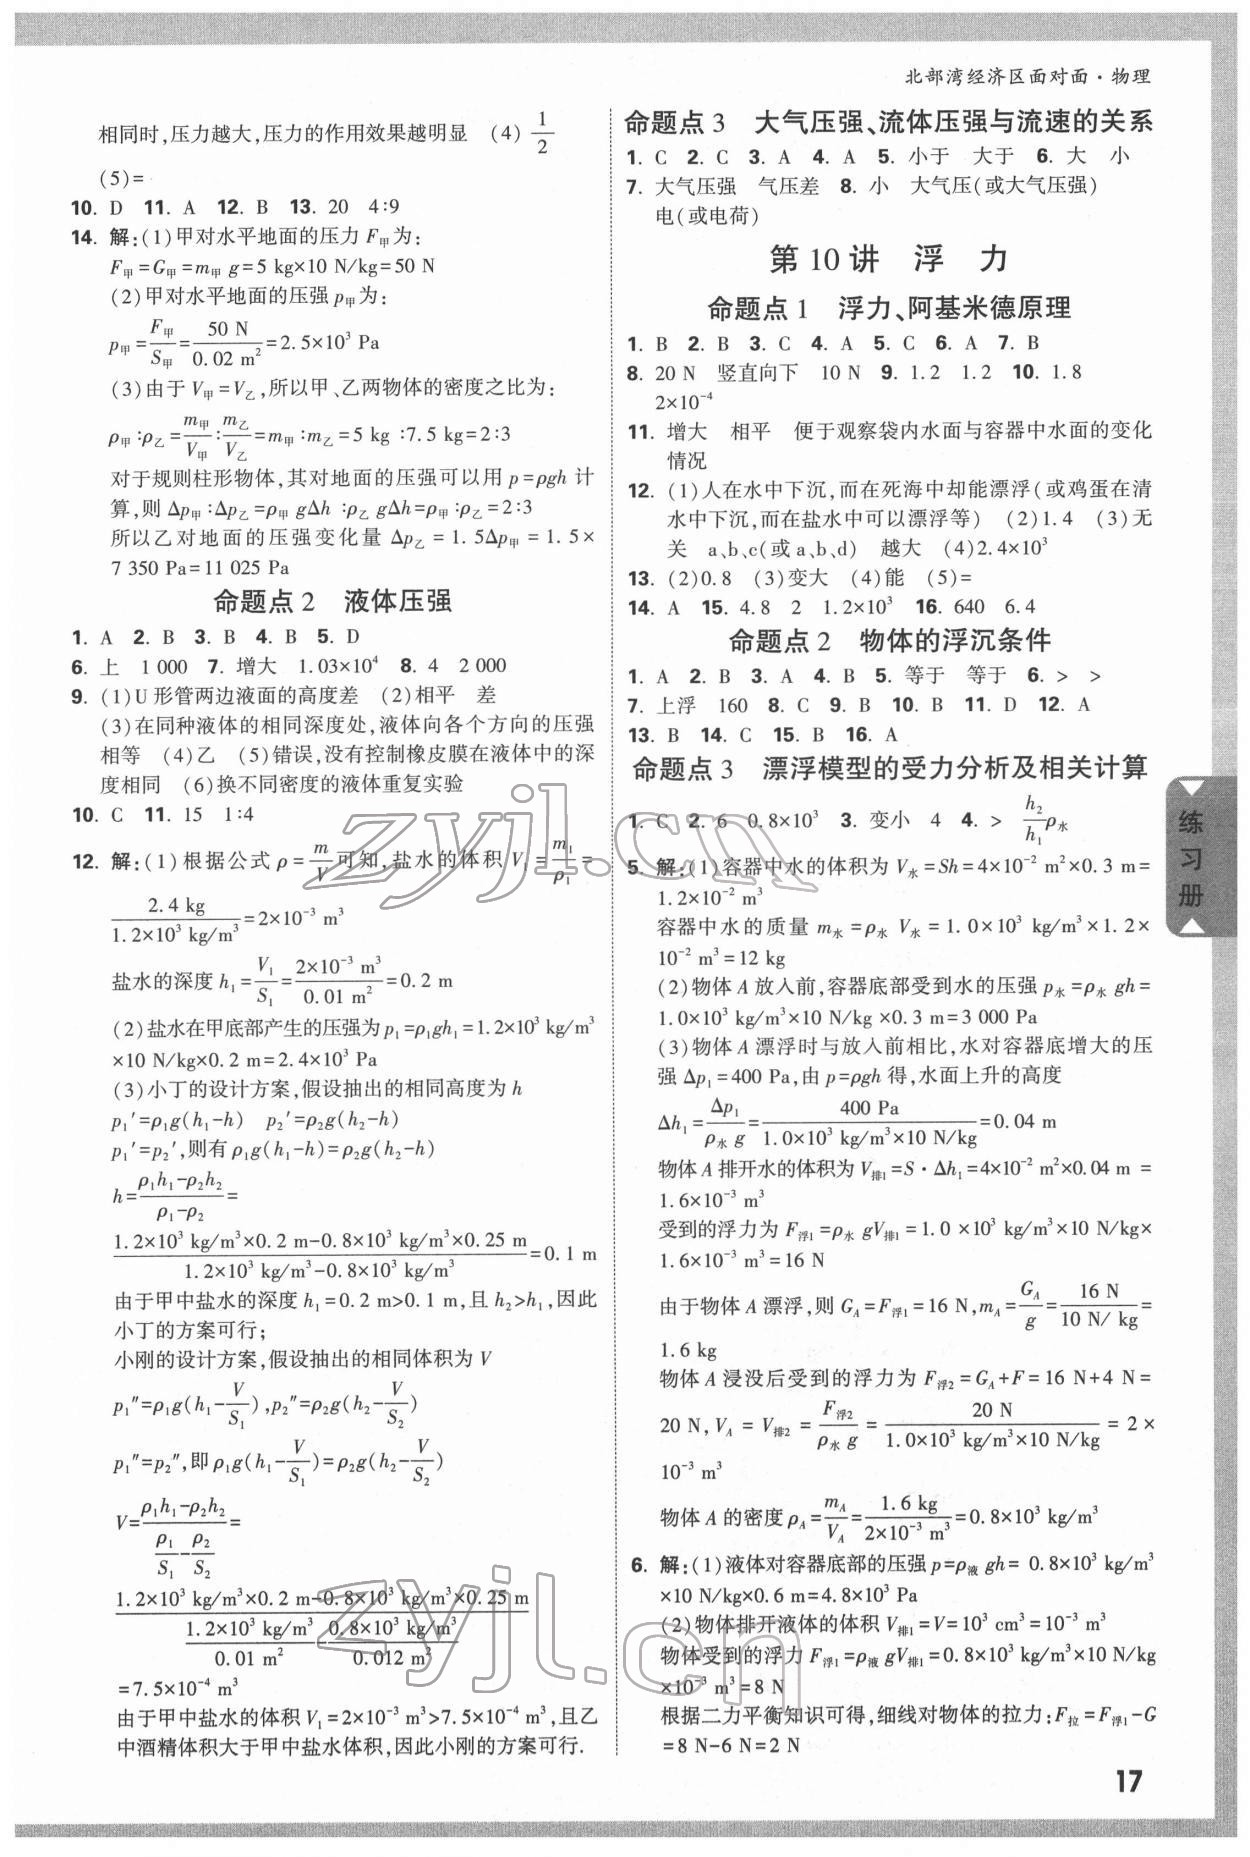 北部湾经济区面对面·物理
相同时,压力越大,压力的作用效果越明显 (4) 1/2
(5)=
10. D 11. A 12. B 13. 20 4∶9
14. 解:(1)甲对水平地面的压力 F甲为:
F甲=G甲=m甲 g=5 kg×10 N/kg=50 N
(2)甲对水平地面的压强 p甲为:
p甲=F甲/S甲=50 N/0.02 m²=2.5×10³ Pa
(3)由于 V甲=V乙,所以甲、乙两物体的密度之比为:
ρ甲∶ρ乙=m甲/V甲∶m乙/V乙=m甲∶m乙=5 kg∶7.5 kg=2∶3
对于规则柱形物体,其对地面的压强可以用 p=ρgh 计
算,则 Δp甲∶Δp乙=ρ甲 gΔh∶ρ乙 gΔh=ρ甲∶ρ乙=2∶3
所以乙对地面的压强变化量 Δp乙=1.5Δp甲=1.5×
7 350 Pa=11 025 Pa
命题点2 液体压强
1. A 2. B 3. B 4. B 5. D
6. 上 1 000 7. 增大 1.03×10⁴ 8. 4 2 000
9. (1)U 形管两边液面的高度差 (2)相平 差
(3)在同种液体的相同深度处,液体向各个方向的压强
相等 (4)乙 (5)错误,没有控制橡皮膜在液体中的深
度相同 (6)换不同密度的液体重复实验
10. C 11. 15 1∶4
12. 解:(1)根据公式 ρ=m/V可知,盐水的体积 V₁=m₁/ρ₁=
2.4 kg/1.2×10³ kg/m³=2×10⁻³ m³
盐水的深度 h₁=V₁/S₁=2×10⁻³ m³/0.01 m²=0.2 m
(2)盐水在甲底部产生的压强为 p₁=ρ₁gh₁=1.2×10³ kg/m³
×10 N/kg×0.2 m=2.4×10³ Pa
(3)小丁的设计方案,假设抽出的相同高度为 h
p₁′=ρ₁g(h₁-h) p₂′=ρ₂g(h₂-h)
p₁′=p₂′,则有 ρ₁g(h₁-h)=ρ₂g(h₂-h)
h=(ρ₁h₁-ρ₂h₂)/(ρ₁-ρ₂)=
(1.2×10³ kg/m³×0.2 m-0.8×10³ kg/m³×0.25 m)/(1.2×10³ kg/m³-0.8×10³ kg/m³)=0.1 m
由于甲中盐水的深度 h₁=0.2 m>0.1 m,且 h₂>h₁,因此
小丁的方案可行;
小刚的设计方案,假设抽出的相同体积为 V
p₁″=ρ₁g(h₁-V/S₁),p₂″=ρ₂g(h₂-V/S₂)
p₁″=p₂″,即 ρ₁g(h₁-V/S₁)=ρ₂g(h₂-V/S₂)
V=(ρ₁h₁-ρ₂h₂)/(ρ₁/S₁-ρ₂/S₂)=
(1.2×10³ kg/m³×0.2 m-0.8×10³ kg/m³×0.25 m)/(1.2×10³ kg/m³/0.01 m²-0.8×10³ kg/m³/0.012 m²)
=7.5×10⁻⁴ m³
由于甲中盐水的体积 V₁=2×10⁻³ m³>7.5×10⁻⁴ m³,且乙
中酒精体积大于甲中盐水体积,因此小刚的方案可行.
命题点3 大气压强、流体压强与流速的关系
1. C 2. C 3. A 4. A 5. 小于 大于 6. 大 小
7. 大气压强 气压差 8. 小 大气压(或大气压强)
电(或电荷)
第10讲 浮 力
命题点1 浮力、阿基米德原理
1. B 2. B 3. C 4. A 5. C 6. A 7. B
8. 20 N 竖直向下 10 N 9. 1.2 1.2 10. 1.8
2×10⁻⁴
11. 增大 相平 便于观察袋内水面与容器中水面的变化
情况
12. (1)人在水中下沉,而在死海中却能漂浮(或鸡蛋在清
水中下沉,而在盐水中可以漂浮等) (2)1.4 (3)无
关 a、b、c(或 a、b、d) 越大 (4)2.4×10³
13. (2)0.8 (3)变大 (4)能 (5)=
14. A 15. 4.8 2 1.2×10³ 16. 640 6.4
命题点2 物体的浮沉条件
1. A 2. B 3. A 4. B 5. 等于 等于 6. > >
7. 上浮 160 8. C 9. B 10. B 11. D 12. A
13. B 14. C 15. B 16. A
命题点3 漂浮模型的受力分析及相关计算
1. C 2. 6 0.8×10³ 3. 变小 4 4. > h₂/h₁ρ水
5. 解:(1)容器中水的体积为 V水=Sh=4×10⁻² m²×0.3 m=
1.2×10⁻² m³
容器中水的质量 m水=ρ水 V水=1.0×10³ kg/m³×1.2×
10⁻² m³=12 kg
(2)物体 A 放入前,容器底部受到水的压强 p水=ρ水 gh=
1.0×10³ kg/m³×10 N/kg×0.3 m=3 000 Pa
(3)物体 A 漂浮时与放入前相比,水对容器底增大的压
强 Δp₁=400 Pa,由 p=ρgh 得,水面上升的高度
Δh₁=Δp₁/ρ水 g=400 Pa/1.0×10³ kg/m³×10 N/kg=0.04 m
物体 A 排开水的体积为 V排1=S·Δh₁=4×10⁻² m²×0.04 m=
1.6×10⁻³ m³
受到的浮力为 F浮1=ρ水 gV排1=1.0×10³ kg/m³×10 N/kg×
1.6×10⁻³ m³=16 N
由于物体 A 漂浮,则 G_A=F浮1=16 N,m_A=G_A/g=16 N/10 N/kg=
1.6 kg
物体 A 浸没后受到的浮力为 F浮2=G_A+F=16 N+4 N=
20 N,V_A=V排2=F浮2/ρ水 g=20 N/1.0×10³ kg/m³×10 N/kg=2×
10⁻³ m³
物体 A 的密度 ρ_A=m_A/V_A=1.6 kg/2×10⁻³ m³=0.8×10³ kg/m³
6. 解:(1)液体对容器底部的压强 p=ρ液 gh=0.8×10³ kg/m³
×10 N/kg×0.6 m=4.8×10³ Pa
(2)物体排开液体的体积 V排1=V=10³ cm³=10⁻³ m³
物体受到的浮力 F浮1=ρ液 gV排1=0.8×10³ kg/m³×10 N/kg
×10⁻³ m³=8 N
根据二力平衡知识可得,细线对物体的拉力:F拉=F浮1-G
=8 N-6 N=2 N
练习册
17
zyjl.cn
zyjl.cn